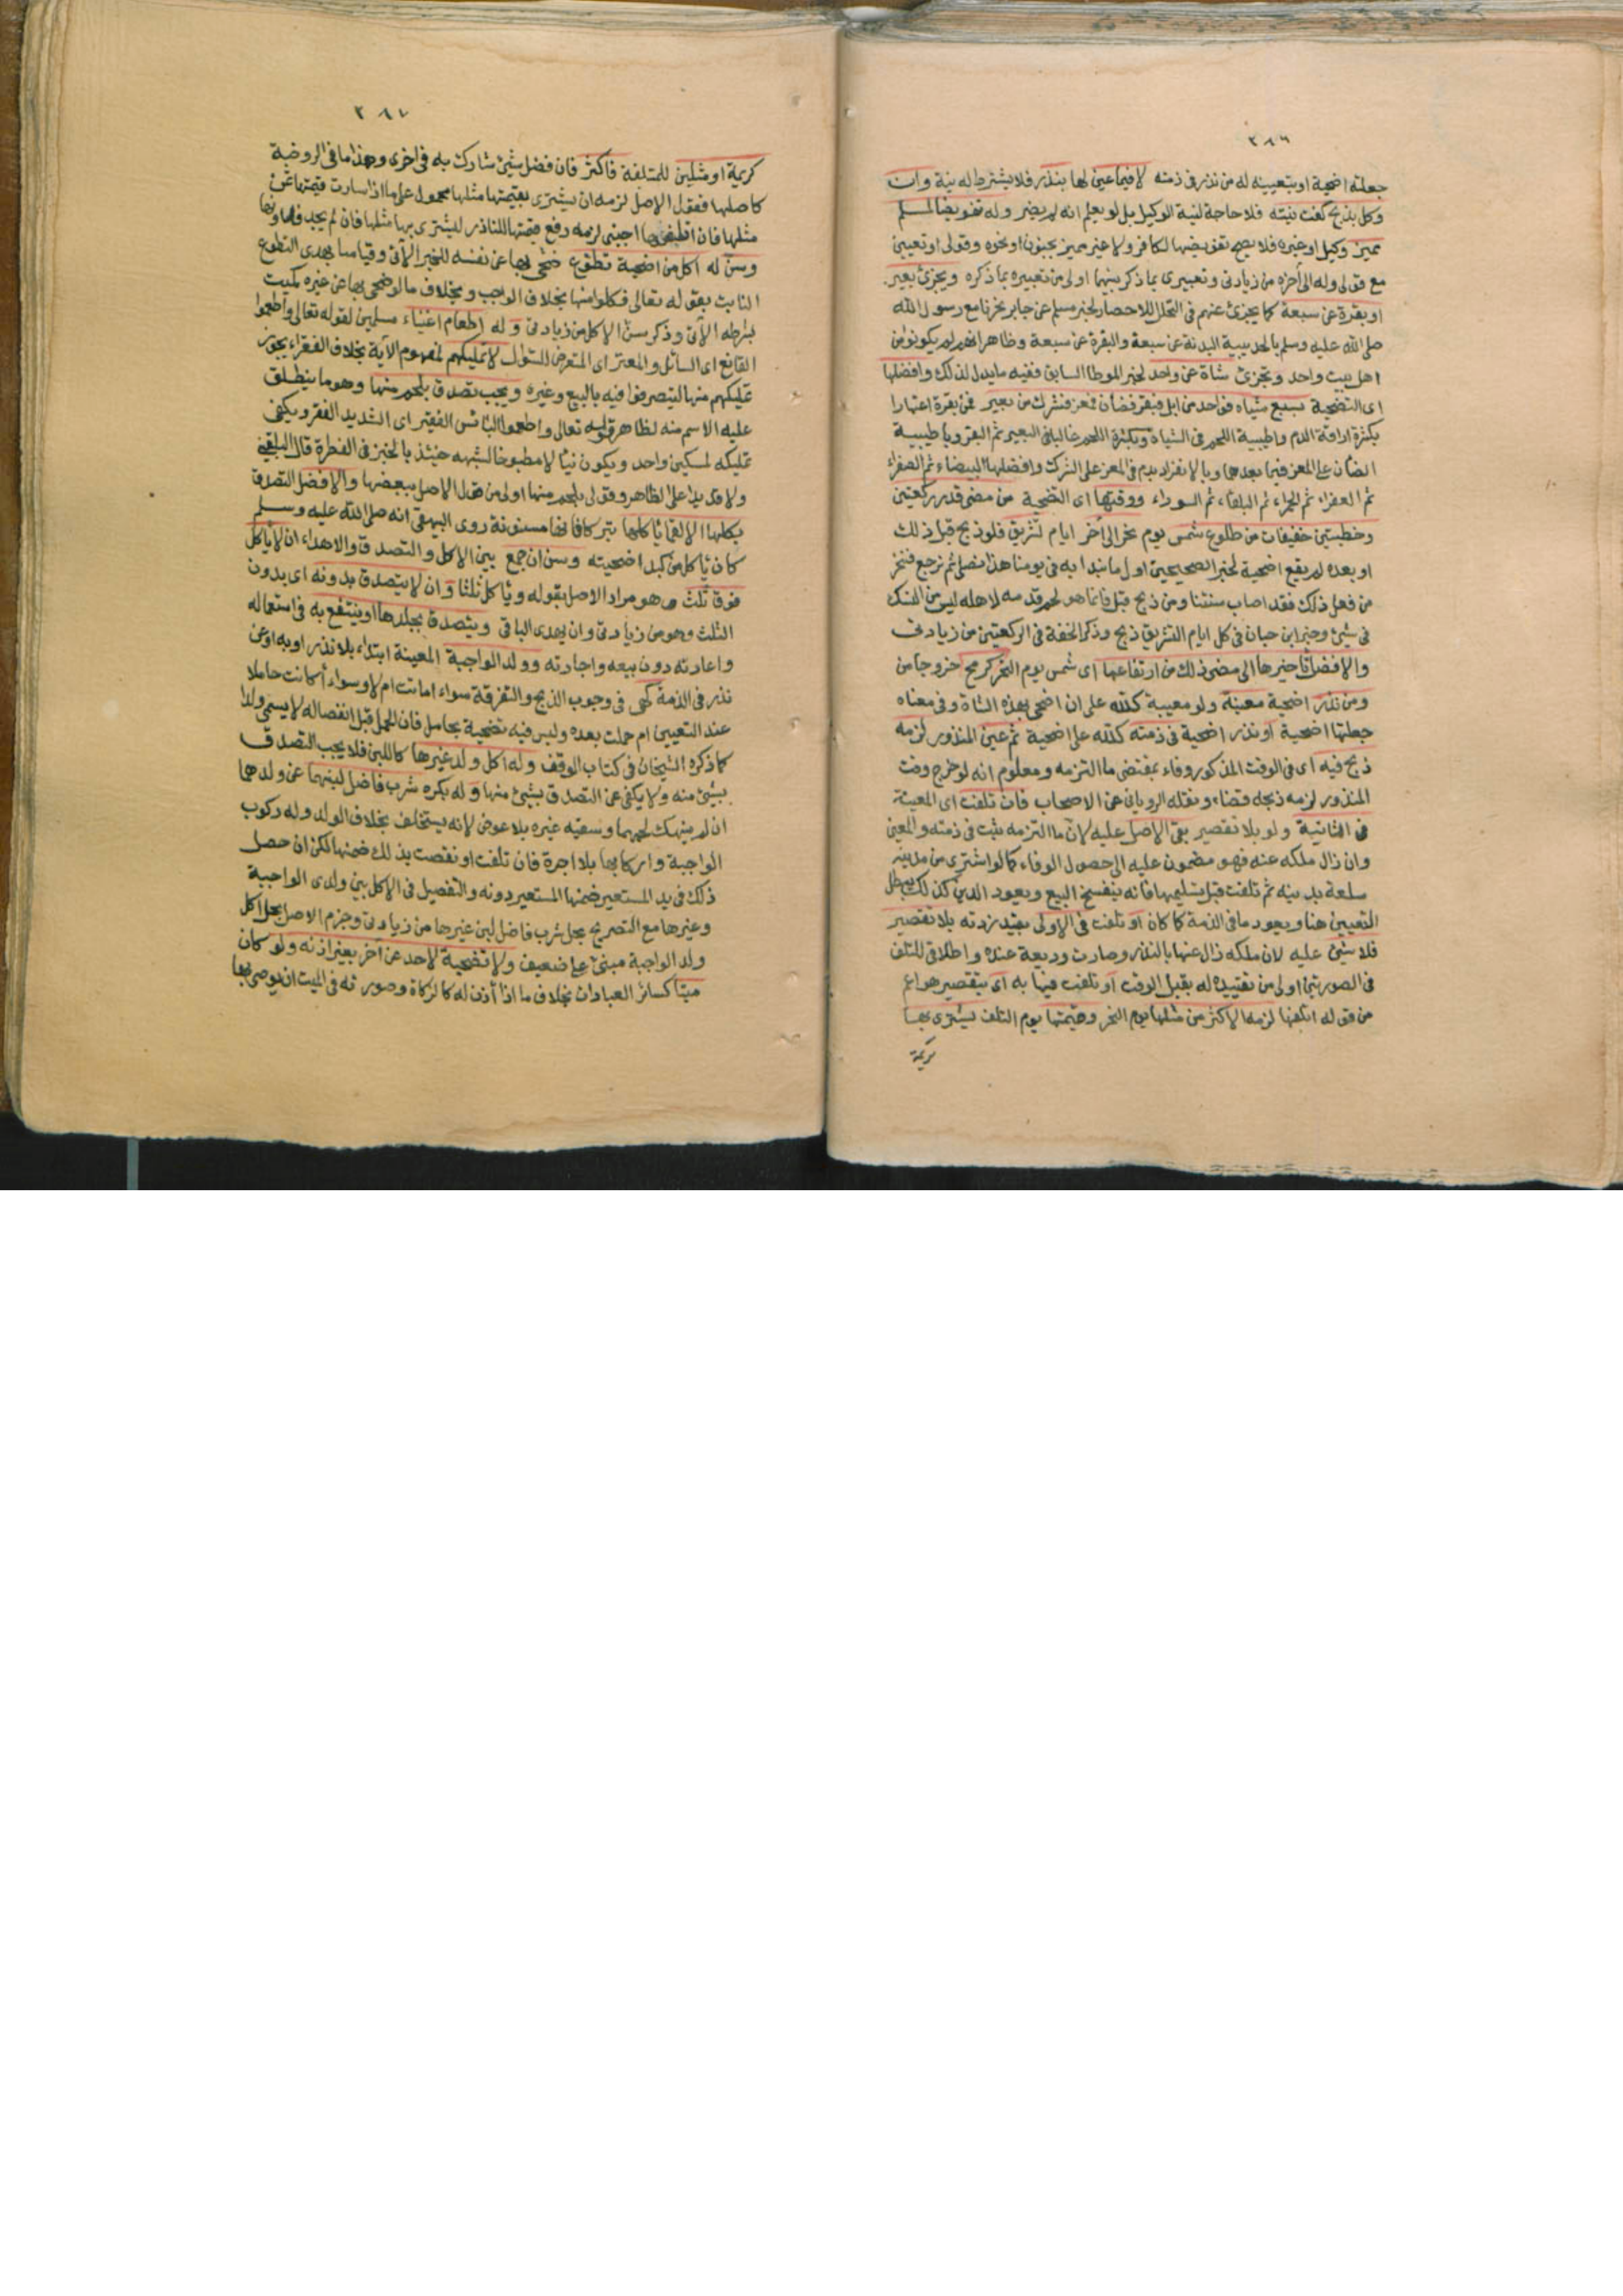 ٢٨٦
جعلته اضحية او بتعيينه له من نذر فى ذمته لا فيما عين لها بنذر فلا يشترط له نية وان
وكل بذبح كفت نيته فلا حاجة لنية الوكيل بل لو يعلم انه لم يضر وله تفويضها لمسلم
مميز وكيل او غيره فلا يصح تفويضها لكافر ولا غير مميز بجنون او نحوه وقولى او تعيين
مع قولى وله الى آخره من زيادتى وتعبيرى بما ذكر بينهما اولى من تعبيره بما ذكره ويجزئ بعير
او بقرة عن سبعة كما يجزئ عنهم فى التحلل للاحصار لخبر مسلم عن جابر نحرنا مع رسول الله
صلى الله عليه وسلم بالحديبية البدنة عن سبعة والبقرة عن سبعة وظاهر انهم لم يكونوا من
اهل بيت واحد وتجزئ شاة عن واحد لخبر الموطا السابق ففيه ما يدل لذلك وافضلها
اى التضحية بسبع شياه فواحد من ابل فبقر فضان فمعز فشرك من بعير فمن بقرة اعتبارا
بكثرة اراقة الدم واطيبية اللحم فى الشياه وبكثرة اللحم غالبا فى البعير ثم البقر وباطيبية
الضأن على المعز فيما بعدهما وبالانفراد بدم فى المعز على الشرك وافضلها البيضاء ثم الصفراء
ثم العفراء ثم الحمراء ثم البلقاء ثم السوداء ووقتها اى التضحية من مضى قدر ركعتين
وخطبتين خفيفات من طلوع شمس يوم نحر الى آخر ايام تشريق فلو ذبح قبل ذلك
او بعده لم يقع اضحية لخبر الصحيحين اول ما نبدا به فى يومنا هذا نصلى ثم نرجع فننحر
من فعل ذلك فقد اصاب سنتنا ومن ذبح قبل فانما هو لحم قدمه لاهله ليس من النسك
فى شئ وخبر ابن حبان فى كل ايام التشريق ذبح وذكر الخفة فى الركعتين من زيادتى
والافضل تاخيرها الى مضى ذلك من ارتفاعها اى شمس يوم النحر كرمح خروجا من
ومن نذر اضحية معينة ولو معيبة كلله على ان اضحى بهذه الشاة وفى معناه
جعلتها اضحية او نذر اضحية فى ذمته كلله على اضحية ثم عين المنذور لزمه
ذبح فيه اى فى الوقت المذكور وفاء بمقتضى ما التزمه ومعلوم انه لو خرج وقت
المنذور لزمه ذبحه قضاء ونقله الرويانى عن الاصحاب فان تلفت اى المعينة
فى الثانية ولو بلا تقصير بقى الاصل عليه لان ما التزمه ثبت فى ذمته والمعين
وان زال ملكه عنه فهو مضمون عليه الى حصول الوفاء كما لو اشترى من مدينه
سلعة بدينه ثم تلفت قبل تسليمها فانه ينفسخ البيع ويعود الدين كذلك يبطل
التعيين هنا ويعود ما فى الذمة كما كان او تلفت فى الاولى بقيد زدته بلا تقصير
فلا شئ عليه لان ملكه زال عنها بالنذر وصارت وديعة عنده واطلاقى للتلف
فى الصورتين اولى من تقييده له بقبل الوقت او تلفت فيها به اى بتقصير هو اعم
من قوله اتلفها لزمه الاكثر من مثلها يوم النحر وقيمتها يوم التلف ليشترى بها
كريمة
٢٨٧
كريمة او مثلين للمتلفة فاكثر فان فضل شئ شارك به فى اخرى وهذا ما فى الروضة
كاصلها فقول الاصل لزمه ان يشترى بقيمتها مثلها محمول على ما اذا ساوت قيمتها ثمن
مثلها فان اتلفها اجنبى لزمه دفع قيمتها للناذر ليشترى بها مثلها فان لم يجد فما دونها
وسن له اكل من اضحية تطوع ضحى بها عن نفسه للخبر الآتى وقياسا بهدى التطوع
الثابت بقوله تعالى فكلوا منها بخلاف الواجب وبخلاف ما لو ضحى بها عن غيره كميت
بشرطه الآتى وذكر سن الاكل من زيادتى وله اطعام اغنياء مسلمين لقوله تعالى واطعموا
القانع اى السائل والمعتر اى المتعرض للسؤال لا تمليكهم لمفهوم الآية بخلاف الفقراء يجوز
تمليكهم منها ليتصرفوا فيه بالبيع وغيره ويجب تصدق بلحم منها وهو ما ينطلق
عليه الاسم منه لظاهر قوله تعالى واطعموا البائس الفقير اى الشديد الفقر ويكفى
تمليكه لمسكين واحد ويكون نيئا لا مطبوخا لشبهه حينئذ بالخبز فى الفطرة قال البلقينى
ولا قديدا على الظاهر وقولى بلحم منها اولى من قول الاصل ببعضها والافضل التصدق
بكلها الا لقما يأكلها تبركا فانها مسنونة روى البيهقى انه صلى الله عليه وسلم
كان يأكل من كبد اضحيته وسن ان جمع بين الاكل والتصدق والاهداء ان لا ياكل
فوق ثلث وهو مراد الاصل بقوله ويأكل ثلثا وان لا يتصدق بدونه اى بدون
الثلث وهو من زيادتى وان يهدى الباقى ويتصدق بجلدها او ينتفع به فى استعماله
واعارته دون بيعه واجارته وولد الواجبة المعينة ابتداء بلا نذر او به او عن
نذر فى الذمة كهى فى وجوب الذبح والتفرقة سواء اماتت ام لا وسواء أكانت حاملا
عند التعيين ام حملت بعده وليس فيه تضحية بحامل فان الحمل قبل انفصاله لا يسمى ولدا
كما ذكره الشيخان فى كتاب الوقف وله اكل ولد غيرها كاللبن فلا يجب التصدق
بشئ منه ولا يكفى عن التصدق بشئ منها وله بكره شرب فاضل لبنهما عن ولدهما
ان لم ينهك لحمهما وسقيه غيره بلا عوض لانه يستخلف بخلاف الولد وله ركوب
الواجبة واركابها بلا اجرة فان تلفت او نقصت بذلك ضمنها لكن ان حصل
ذلك فى يد المستعير ضمنها المستعير دونه والتفصيل فى الاكل بين ولدى الواجبة
وغيرها مع التصريح بحل شرب فاضل لبن غيرها من زيادتى وجزم الاصل بحل اكل
ولد الواجبة مبنى على ضعيف ولا تضحية لاحد عن آخر بغير اذنه ولو كان
ميتا كسائر العبادات بخلاف ما اذا أذن له كالزكاة وصورته فى الميت ان يوصى بها